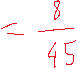 ≤ 8/45